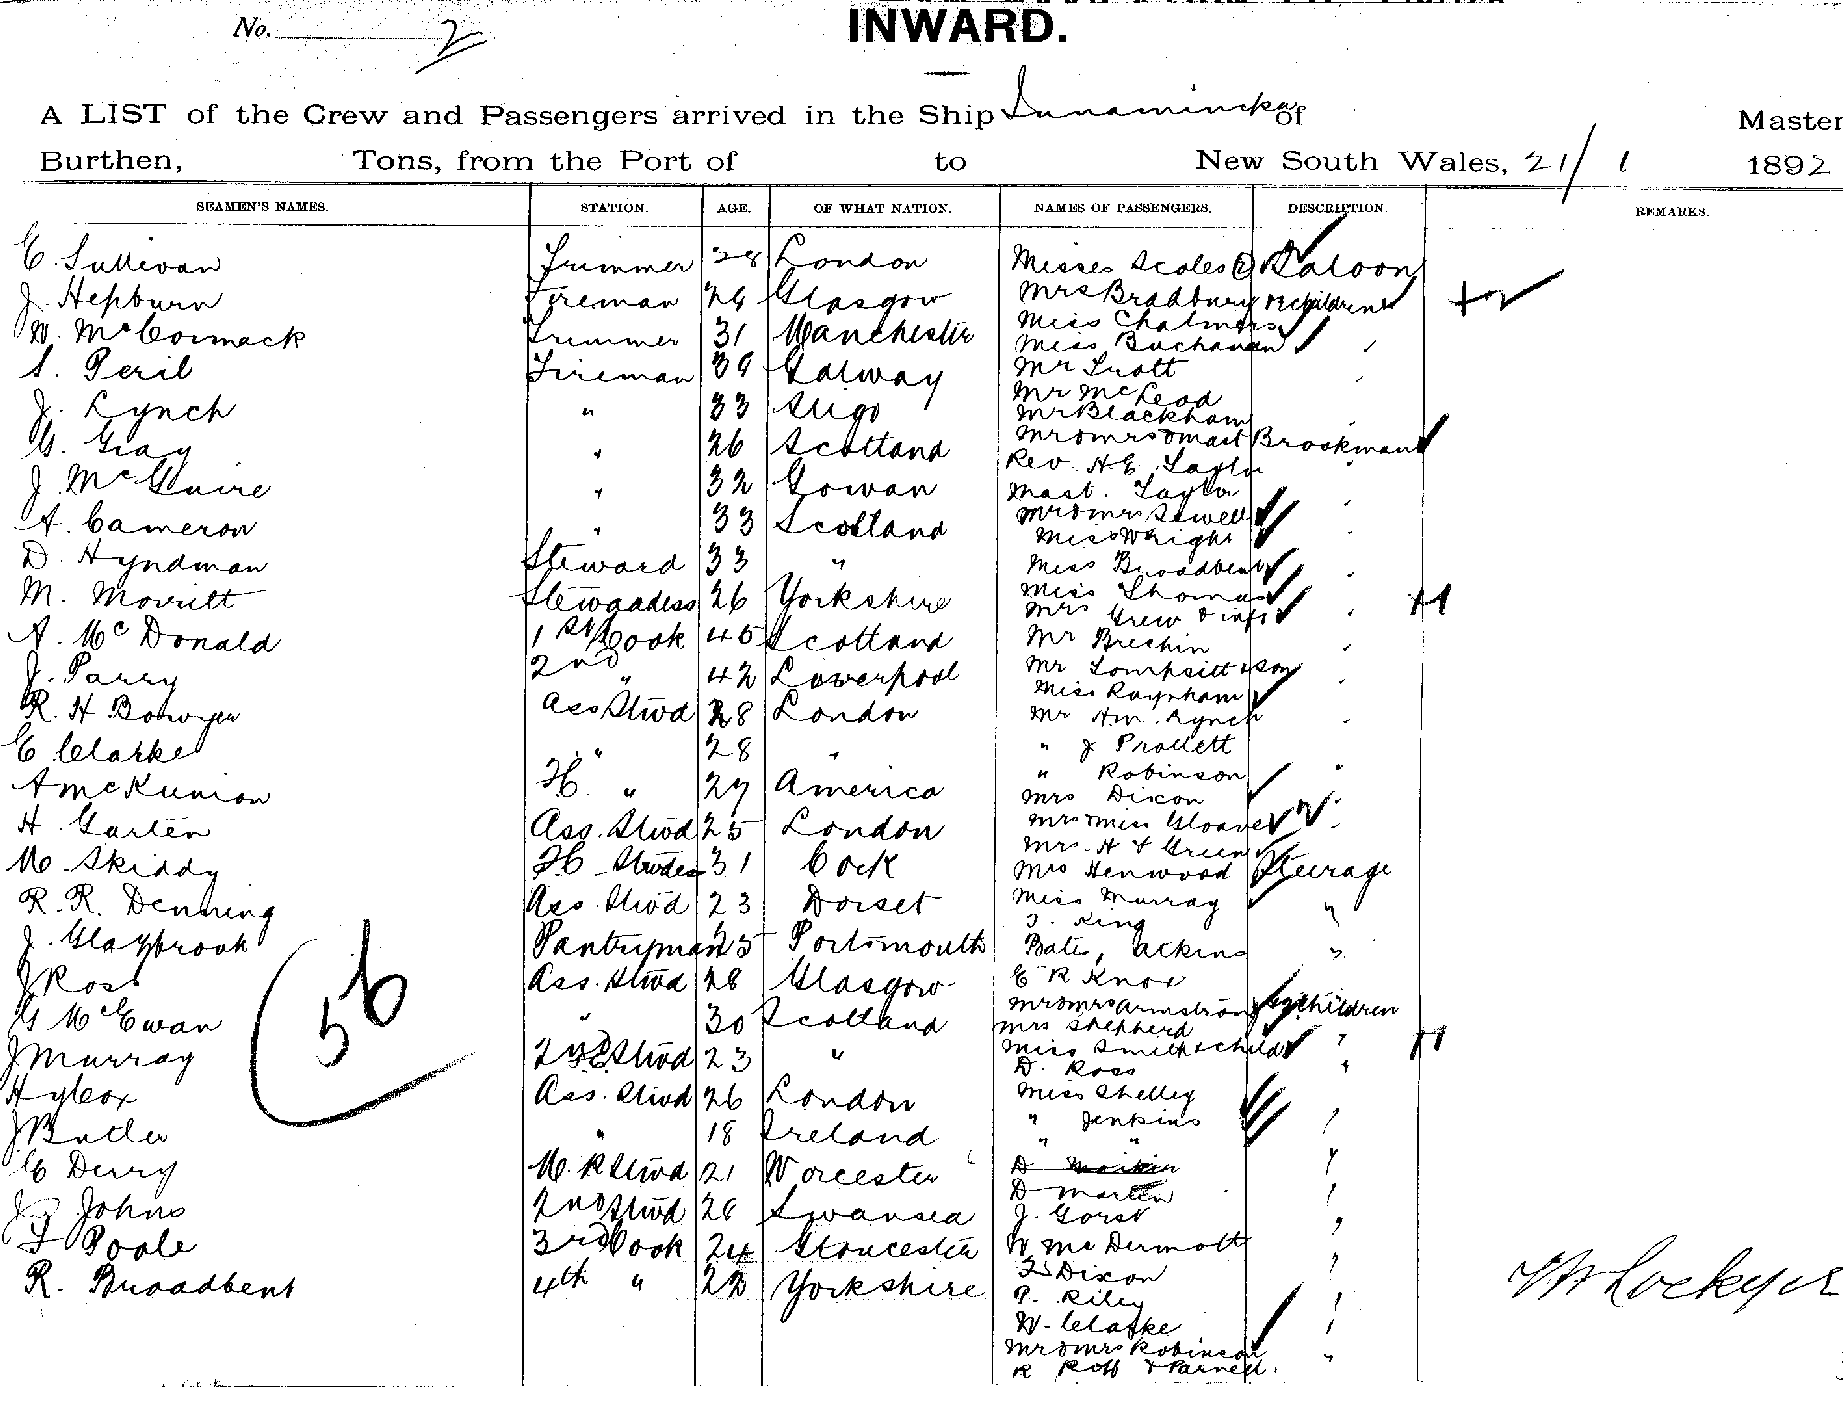 No. 2
INWARD.
A LIST of the Crew and Passengers arrived in the Ship of Master
Burthen, Tons, from the Port of to New South Wales, 21/1 1892
SEAMEN'S NAMES. STATION. AGE. OF WHAT NATION. NAMES OF PASSENGERS. DESCRIPTION. REMARKS.
E. Sullivan Trimmer 28 London Misses Scoles Saloon
J. Hepburn Fireman 24 Glasgow Mrs Bradbury children
W. McCormack Trimmer 31 Manchester Miss Chalmers
Miss Buchanan
S. Peril Fireman 39 Galway Mr Trott
Mr McLeod
J. Lynch " 33 Sligo Mr Blackham
G. Gray " 26 Scotland Mr & Mrs & Mast Brookman
Rev. H E. Taylor
J. McGuire " 32 Gowan Mast. Taylor
A. Cameron " 33 Scotland Mr & Mrs Sewell
Miss Wright
D. Hyndman Steward 33 " Miss Broadbent
M. Morritt Stewaadess 26 Yorkshire Miss Thomas
Mrs Grew & inft
A. McDonald 1st Cook 45 Scotland Mr Brechin
J. Parry 2nd " 42 Loverpool Mr & son
Miss Raynham
R. H Bowyer Ass Stwd 28 London Mr Lynch
E Clarke " 28 " " J Prollett
" Robinson
A McKunion " 27 America Mrs Dixon
H. Garten Ass. Stwd 25 London Mrs & Miss Sloane
Mrs. H & Green
M. Skiddy 31 Cork Mrs Henwood Steerage
R. R. Denning Ass. Stwd 23 Dorset Miss Murray "
J. King
J. Glaybrook Pantryman 25 Portsmouth Bates, Atkins "
J Ross Ass. Stwd 28 Glasgow E R Knox
G McEwan " 30 Scotland Mr & Mrs Armstrong children
Mrs Shepherd
J Murray 2nd Stwd 23 " Miss Smith & child "
D. Ross "
Hylcox Ass. Stwd 26 London Miss Shelley
J Butler " 18 Ireland " Jenkins
" "
E Derry M. R Stwd 21 Worcester D
D Martin
J. Johns 2nd Stwd 26 Swansea J. Gorst
F Poole 3rd Cook 24 Gloucester W McDermott
Dixon
R. Broadbent 4th " 22 Yorkshire P. Riley
W. Clarke
Mr & Mrs Robinson
R Roff & Parnell.
56
Lockyer